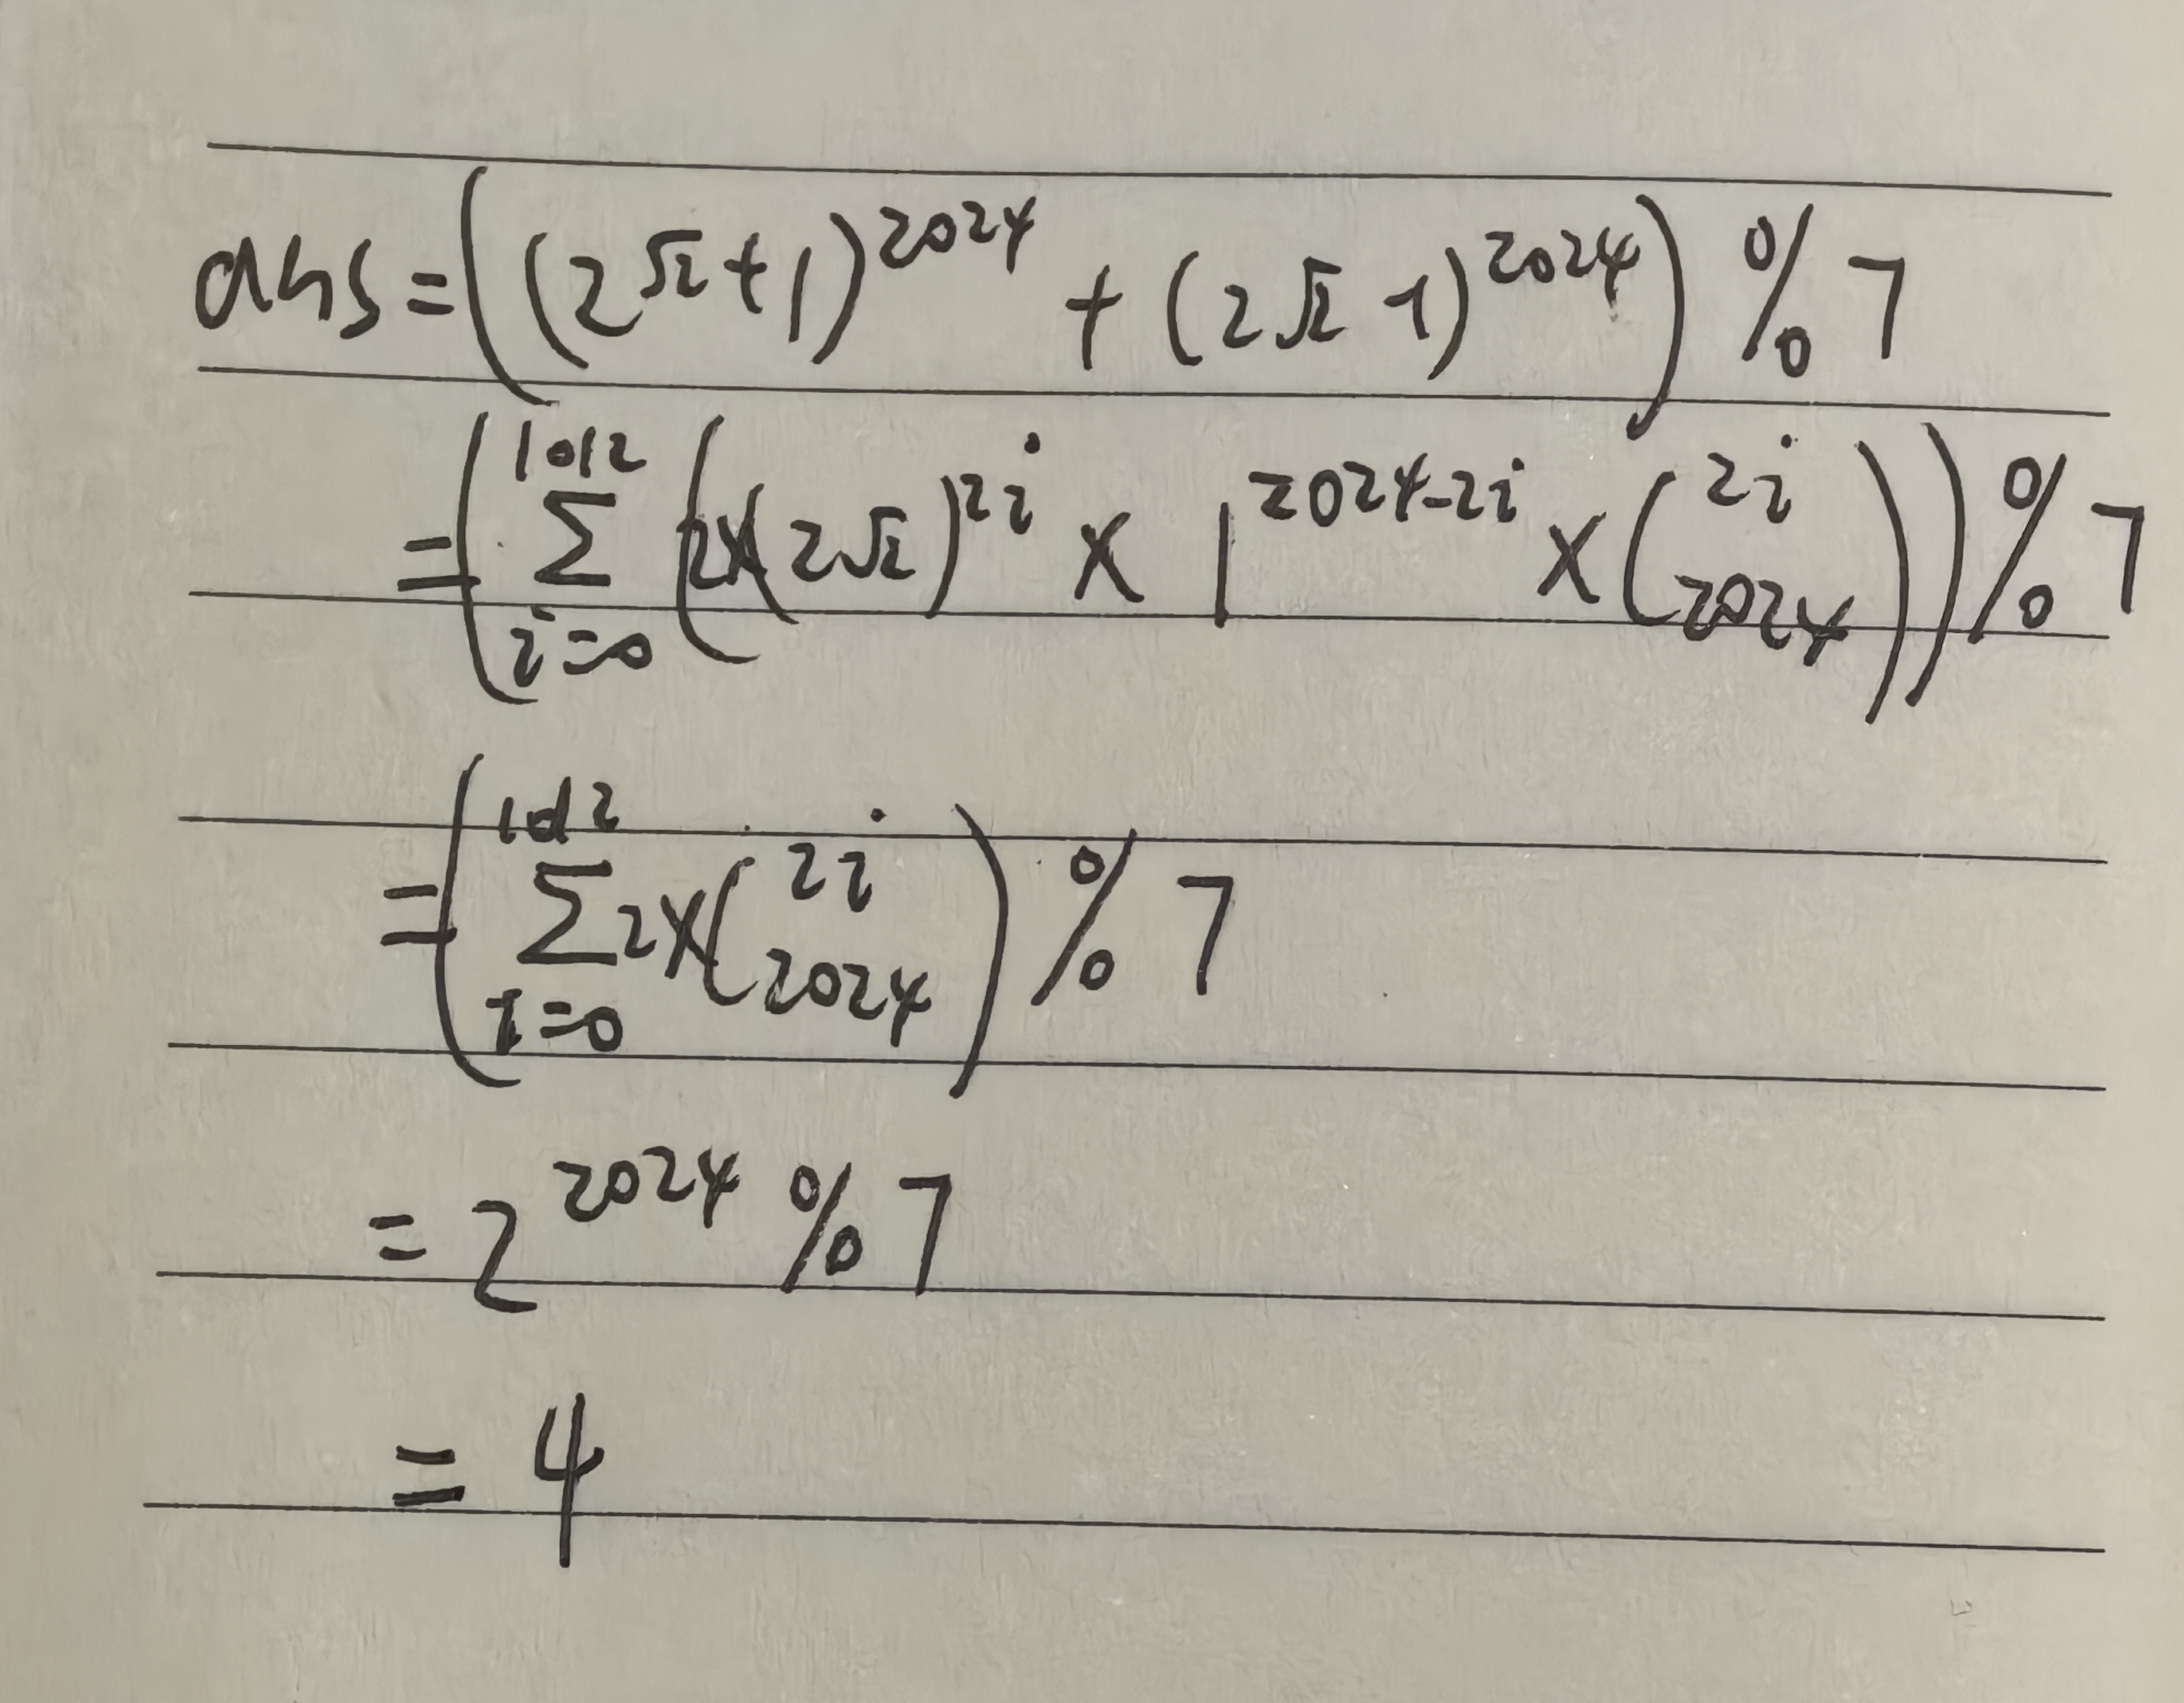 ans = ((2√2+1)^2024 + (2√2-1)^2024) % 7
= (∑_{i=0}^{1012} (2×(2√2)^{2i} × 1^{2024-2i} × (2i 2024))) % 7
= (∑_{i=0}^{1012} 2×(2i 2024)) % 7
= 2^2024 % 7
= 4